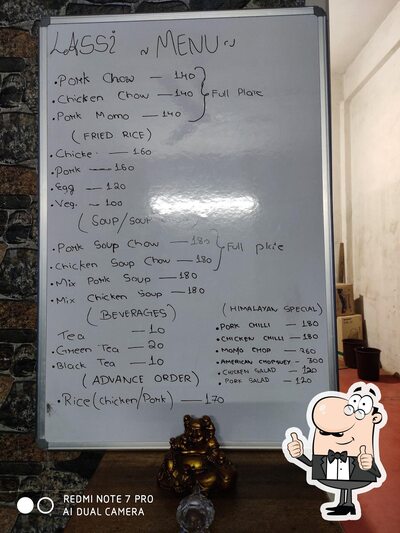 LASSI ~ MENU ~
• Pork Chow — 140
• Chicken Chow — 140
• Pork Momo — 140
Full Plate
(FRIED RICE)
• Chicke — 160
• Pork — 160
• Egg — 120
• Veg. — 100
(SOUP/SOUP
• Pork Soup Chow — 180
• Chicken Soup Chow — 180
Full plate
• Mix Pork Soup — 180
• Mix Chicken Soup — 180
(BEVERAGES)
Tea — 10
• Green Tea — 20
• Black Tea — 10
(HIMALAYAN SPECIAL)
• PORK CHILLI — 180
• CHICKEN CHILLI — 180
• MOMO CHOP — 260
• AMERICAN CHOPSUEY — 300
• CHICKEN SALAD — 120
• PORK SALAD — 120
(ADVANCE ORDER)
• Rice (Chicken/Pork) — 170
REDMI NOTE 7 PRO
AI DUAL CAMERA